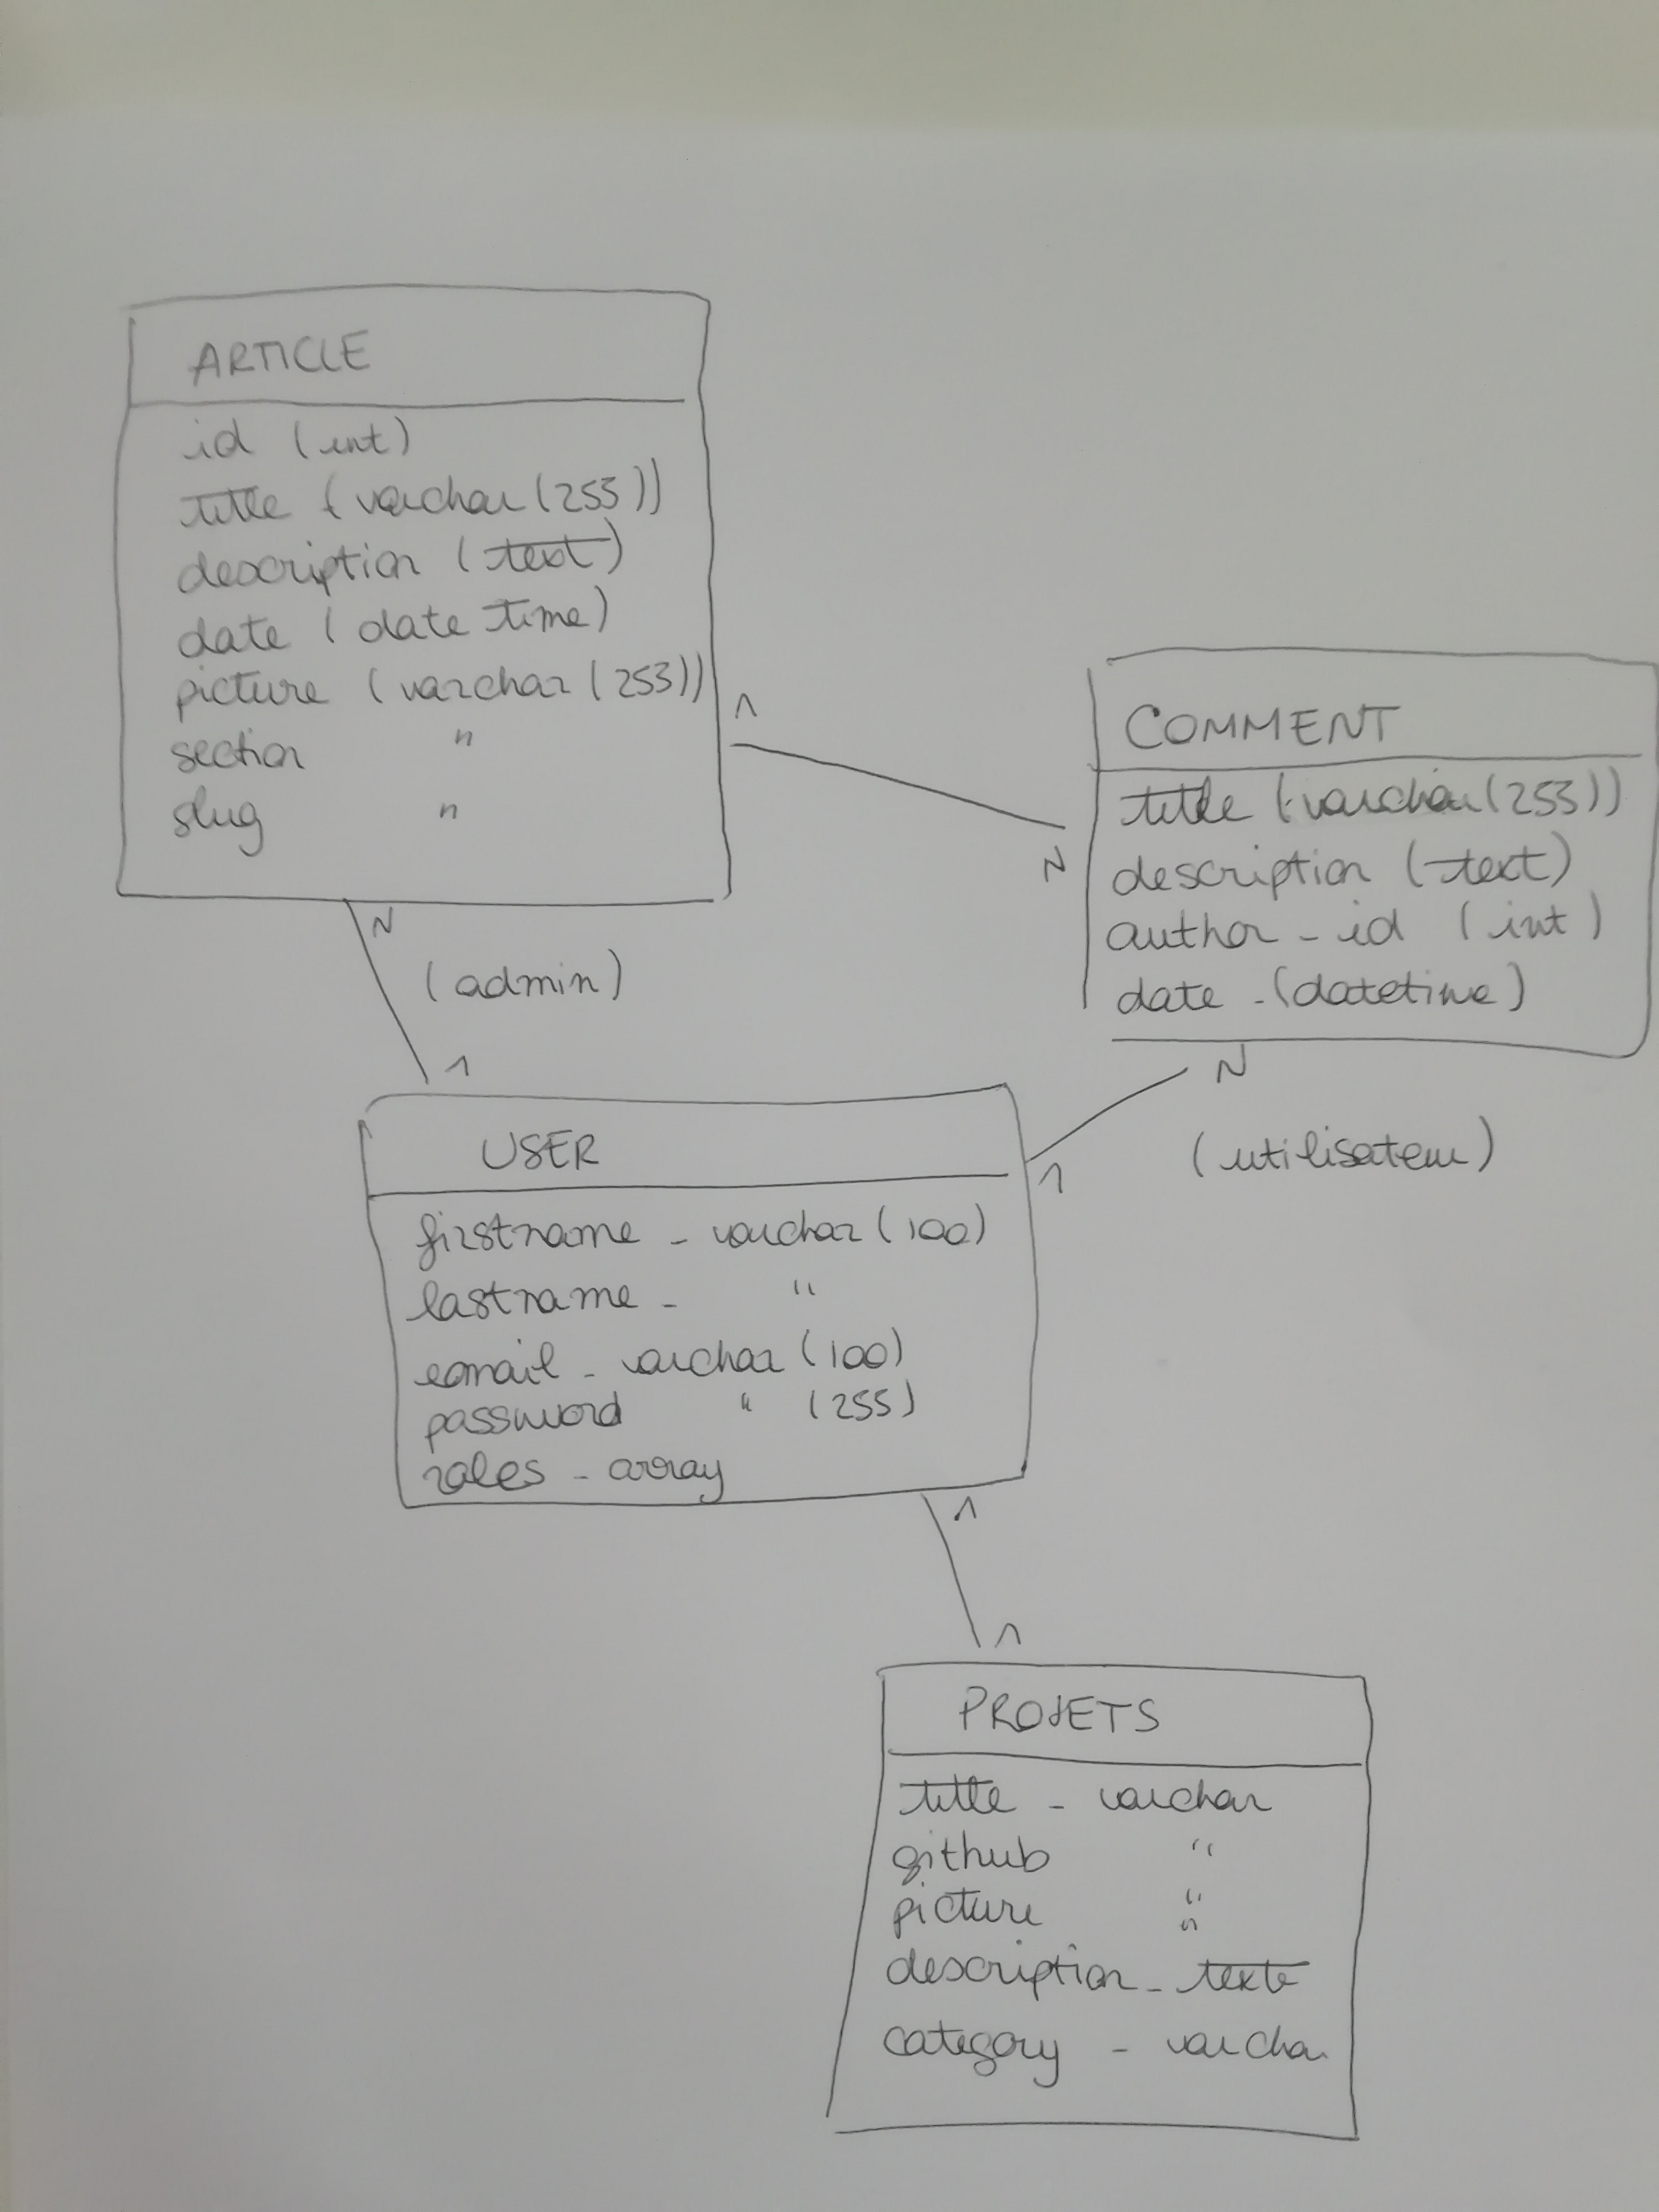 ARTICLE
id (int)
title (varchar(255))
description (text)
date (date time)
picture (varchar(255))
section "
slug "
1
N
COMMENT
title (varchar(255))
description (text)
author_id (int)
date - (datetime)
N
(admin)
1
N
(utilisateur)
1
USER
firstname - varchar (100)
lastname - "
email - varchar (100)
password " (255)
roles - array
1
1
PROJETS
title - varchar
github "
picture "
"
description - texte
category - varchar